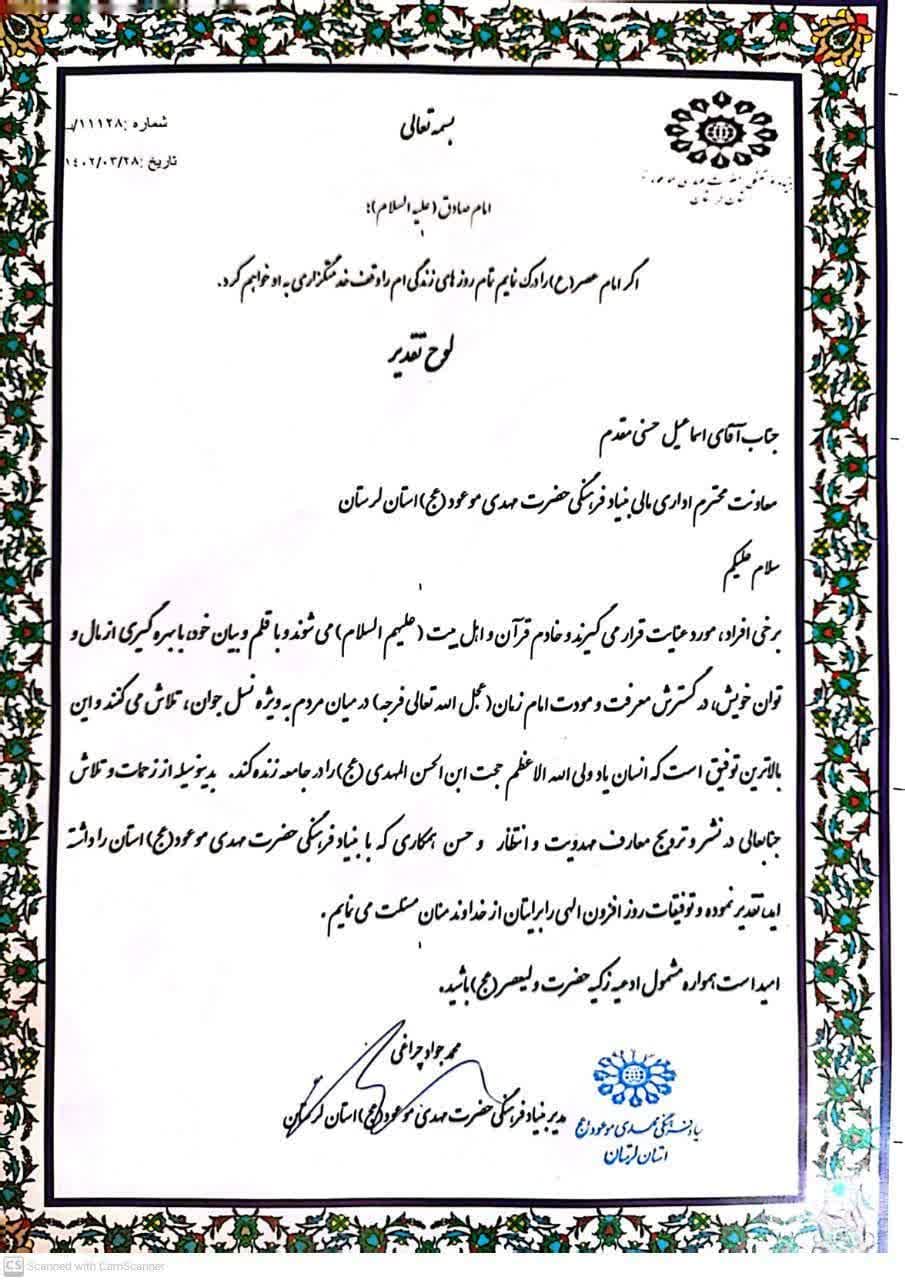 بسمه تعالی
شماره :۱۱۱۲۸/
تاریخ :۱۴۰۲/۰۳/۲۸
امام صادق (علیه السلام)؛
اگر امام عصر(ع) را درک نمایم تمام روز های زندگی ام را وقف خدمتگزاری به او خواهم کرد.
لوح تقدیر
جناب آقای اسماعیل حسنی مقدم
معاونت محترم اداری مالی بنیاد فرهنگی حضرت مهدی موعود (عج) استان لرستان
سلام علیکم
برخی افراد، مورد عنایت قرار می گیرند و خادم قرآن و اهل بیت (علیهم السلام) می شوند و با قلم و بیان خود، با بهره گیری از مال و
توان خویش، در گسترش معرفت و مودت امام زمان (عجل الله تعالی فرجه) در میان مردم به ویژه نسل جوان، تلاش می کنند و این
بالاترین توفیق است که انسان یاد ولی الله الاعظم حجت ابن الحسن المهدی (عج) را در جامعه زنده کند. بدینوسیله از زحمات و تلاش
جنابعالی در نشر و ترویج معارف مهدویت و انتظار و حسن همکاری که با بنیاد فرهنگی حضرت مهدی موعود(عج) استان را داشته
اید، تقدیر نموده و توفیقات روز افزون الهی را برایتان از خداوند منان مسئلت می نمایم .
امید است همواره مشمول ادعیه زکیه حضرت ولیعصر (عج) باشید.
محمد جواد چراغی
مدیر بنیاد فرهنگی حضرت مهدی موعود (عج) استان لرستان
مهدی موعود (عج)
استان لرستان
CS Scanned with CamScanner